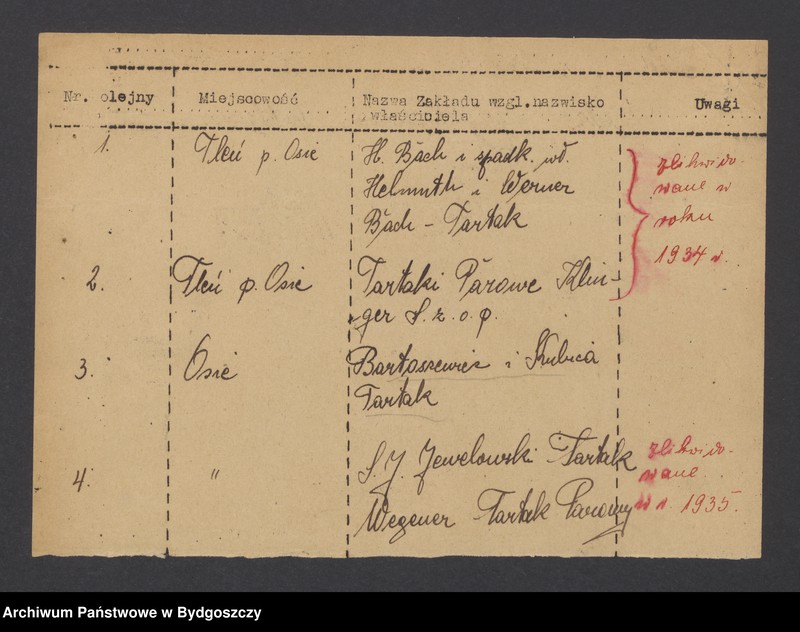 Nr. olejny Miejscowość Nazwa Zakładu wzgl.nazwisko Uwagi
właściciela
1. Tleń p. Osie H. Bach i spadk. wł. zlikwido-
Helmuth i Werner wane w
Bach - Tartak roku
1934 r.
2. Tleń p. Osie Tartaki Parowe Klin-
ger S. z. o. p.
3. Osie Bartoszewicz i Kubica
Tartak
4. " S. J. Jewelowski Tartak zlikwido-
wane
Wegener - Tartak Parowy w r. 1935.
Archiwum Państwowe w Bydgoszczy